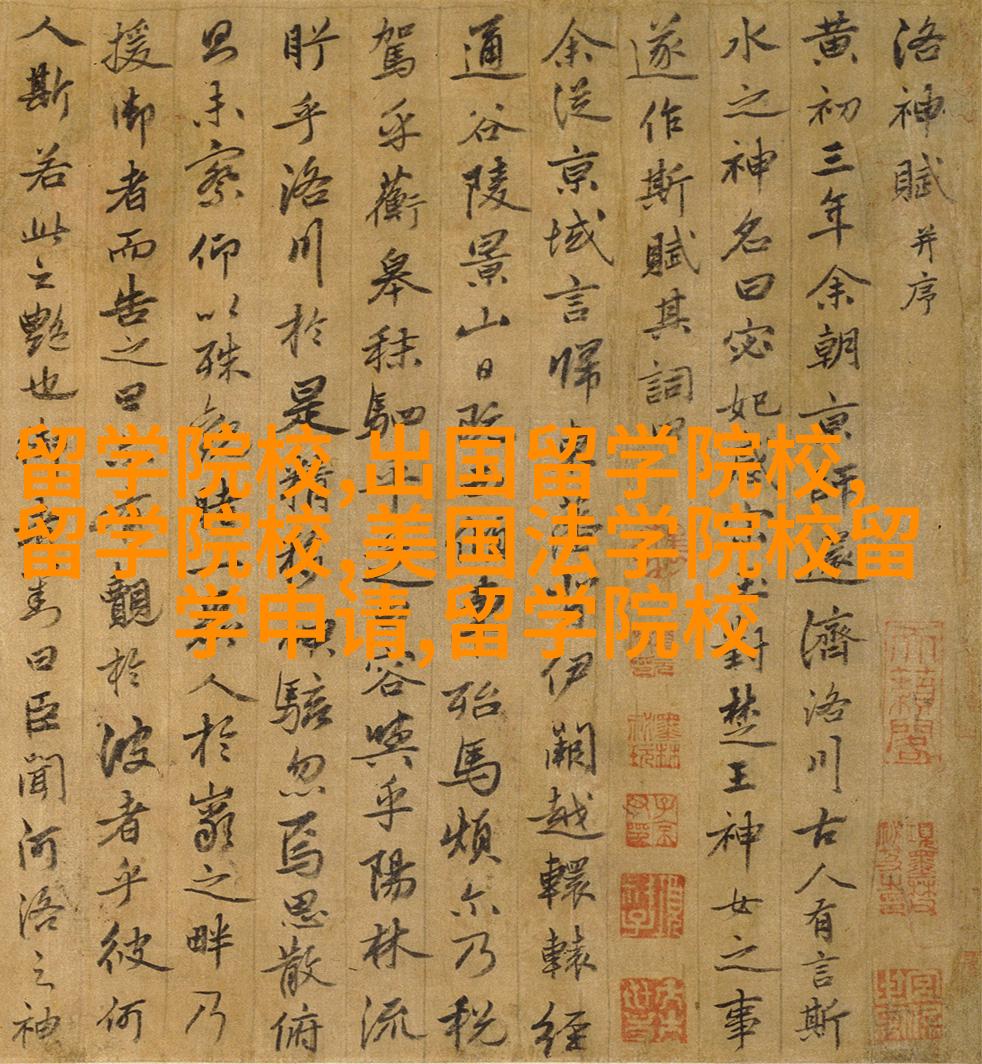 洛神賦并序
黄初三年余朝京師還濟洛川古人有言斯
水之神名曰宓妃感宋玉對楚王神女之事
遂作斯賦其詞曰
余從京域言歸東藩背伊闕越轘轅經
通谷陵景山日既西傾車殆馬煩尒乃税
駕乎蘅皋秣駟乎芝田容與乎陽林流
眄乎洛川於是精移神駭忽焉思散俯
則未察仰以殊觀睹一麗人於巖之畔乃
援御者而告之曰爾有覿於彼者乎彼何
人斯若此之艷也御者對曰臣聞河洛之神
留学院校,出国留学院校,
留学院校,美国法学院校留
学申请,留学院校